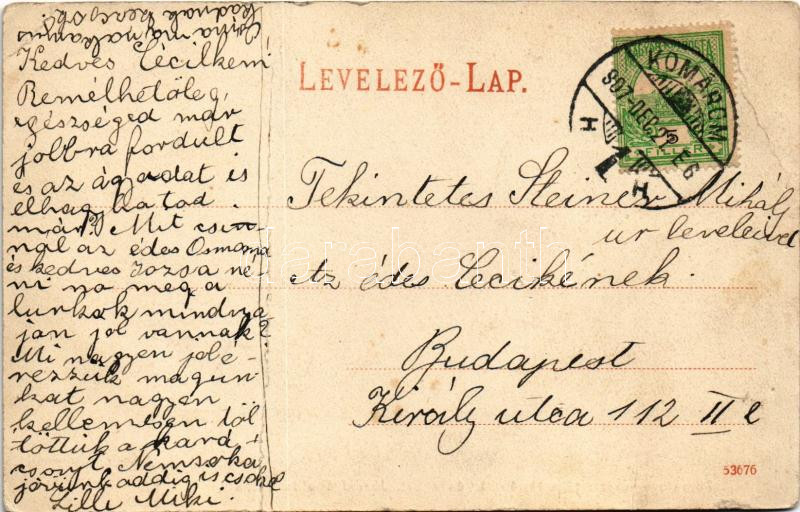 Kedves Cécilkém
Remélhetőleg
egészséged már
jobbra fordult
és az ágyadat is
elhagyhattad
már? Mit csi-
nál az édes Osmama
és kedves Rozsa né-
ni no meg a
lurkok mindnya
jan jol vannak?
Mi nagyon jól é-
rezzük magun
kat nagyon
kellemesen töl
töttük a kará-
csonyt. Nemsoka
jövünk addig is csokol
Lilli Miki.
LEVELEZŐ-LAP.
KOMÁROM
907 DEC. 25
FILLÉR
Tekintetes Steiner Mihály
ur leveleivel
Az édes Cecikének.
Budapest
Király utca 112 II e
53676
darabanth